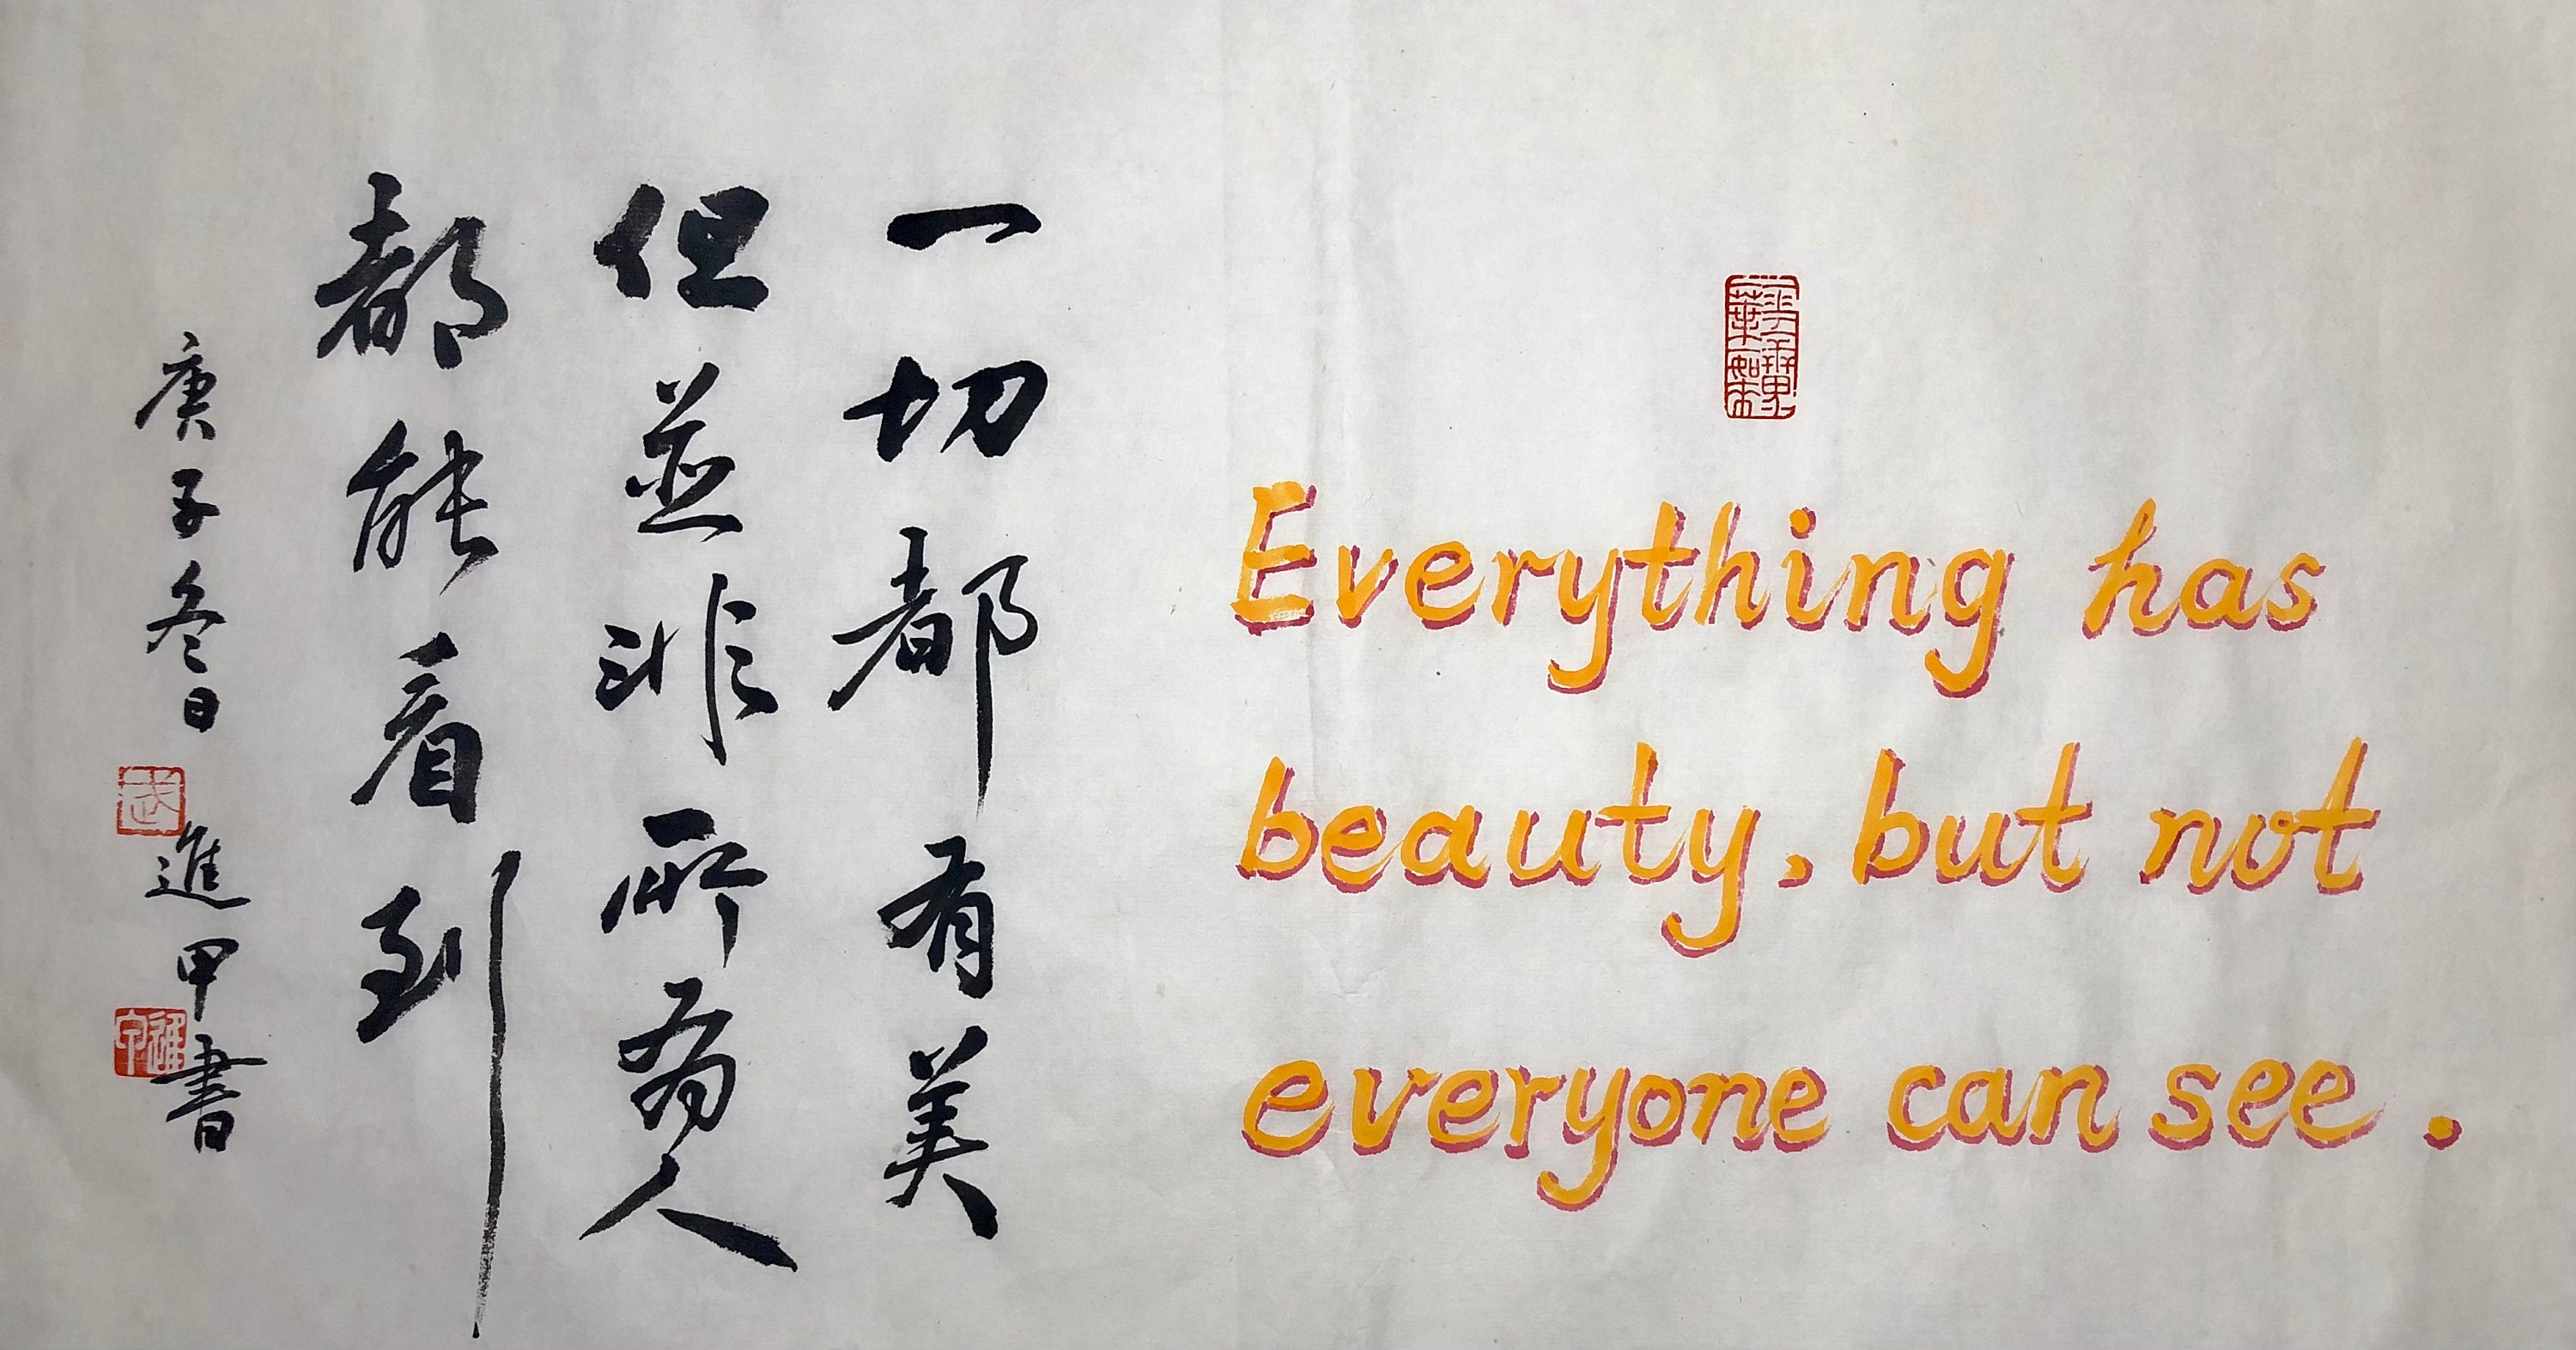 一花一世界
一葉一如來
Everything has
beauty, but not
everyone can see.
一切都有美
但並非所為人
都能看到
庚子冬日 進甲書
武